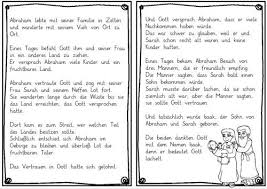 Abraham lebte mit seiner Familie in Zelten
und wanderte mit seinem Vieh von Ort zu
Ort.
Eines Tages befahl Gott ihm und seiner Frau
in ein anderes Land zu ziehen.
Er versprach Abraham viele Kinder und ein
fruchtbares Land.
Abraham vertraute Gott und zog mit seiner
Frau Sarah und seinem Neffen Lot fort.
Sie wanderten lange und durchquerten die
Wüste.
Dort kam es zum Streit, wer welchen Teil
des Landes besitzen sollte.
Schließlich zog sich Abraham im
Gebirge zu bleiben und überließ Lot die
fruchtbare Jordanebene.
Das Vertrauen in Gott hatte sich gelohnt.
Und Gott versprach Abraham, dass er viele
Nachkommen haben würde.
Das war schwer zu glauben, weil er und
Sarah schon recht alt waren und keine
Kinder hatten.
Eines Tages bekam Abraham Besuch von
drei Männern, die er freundlich empfing.
Die Männer sagten, das Sarah bald einen
Sohn bekommen würde.
Sarah musste darüber lachen, da sie schon
ziemlich alt war, aber die Männer sagten,
sie sollte Gott vertrauen.
Und tatsächlich wurde Isaak, der Sohn von
Abraham und Sarah geboren.
Die beiden dankten Gott
mit dem Namen Isaak,
denn er bedeutet Gott
lächelt.